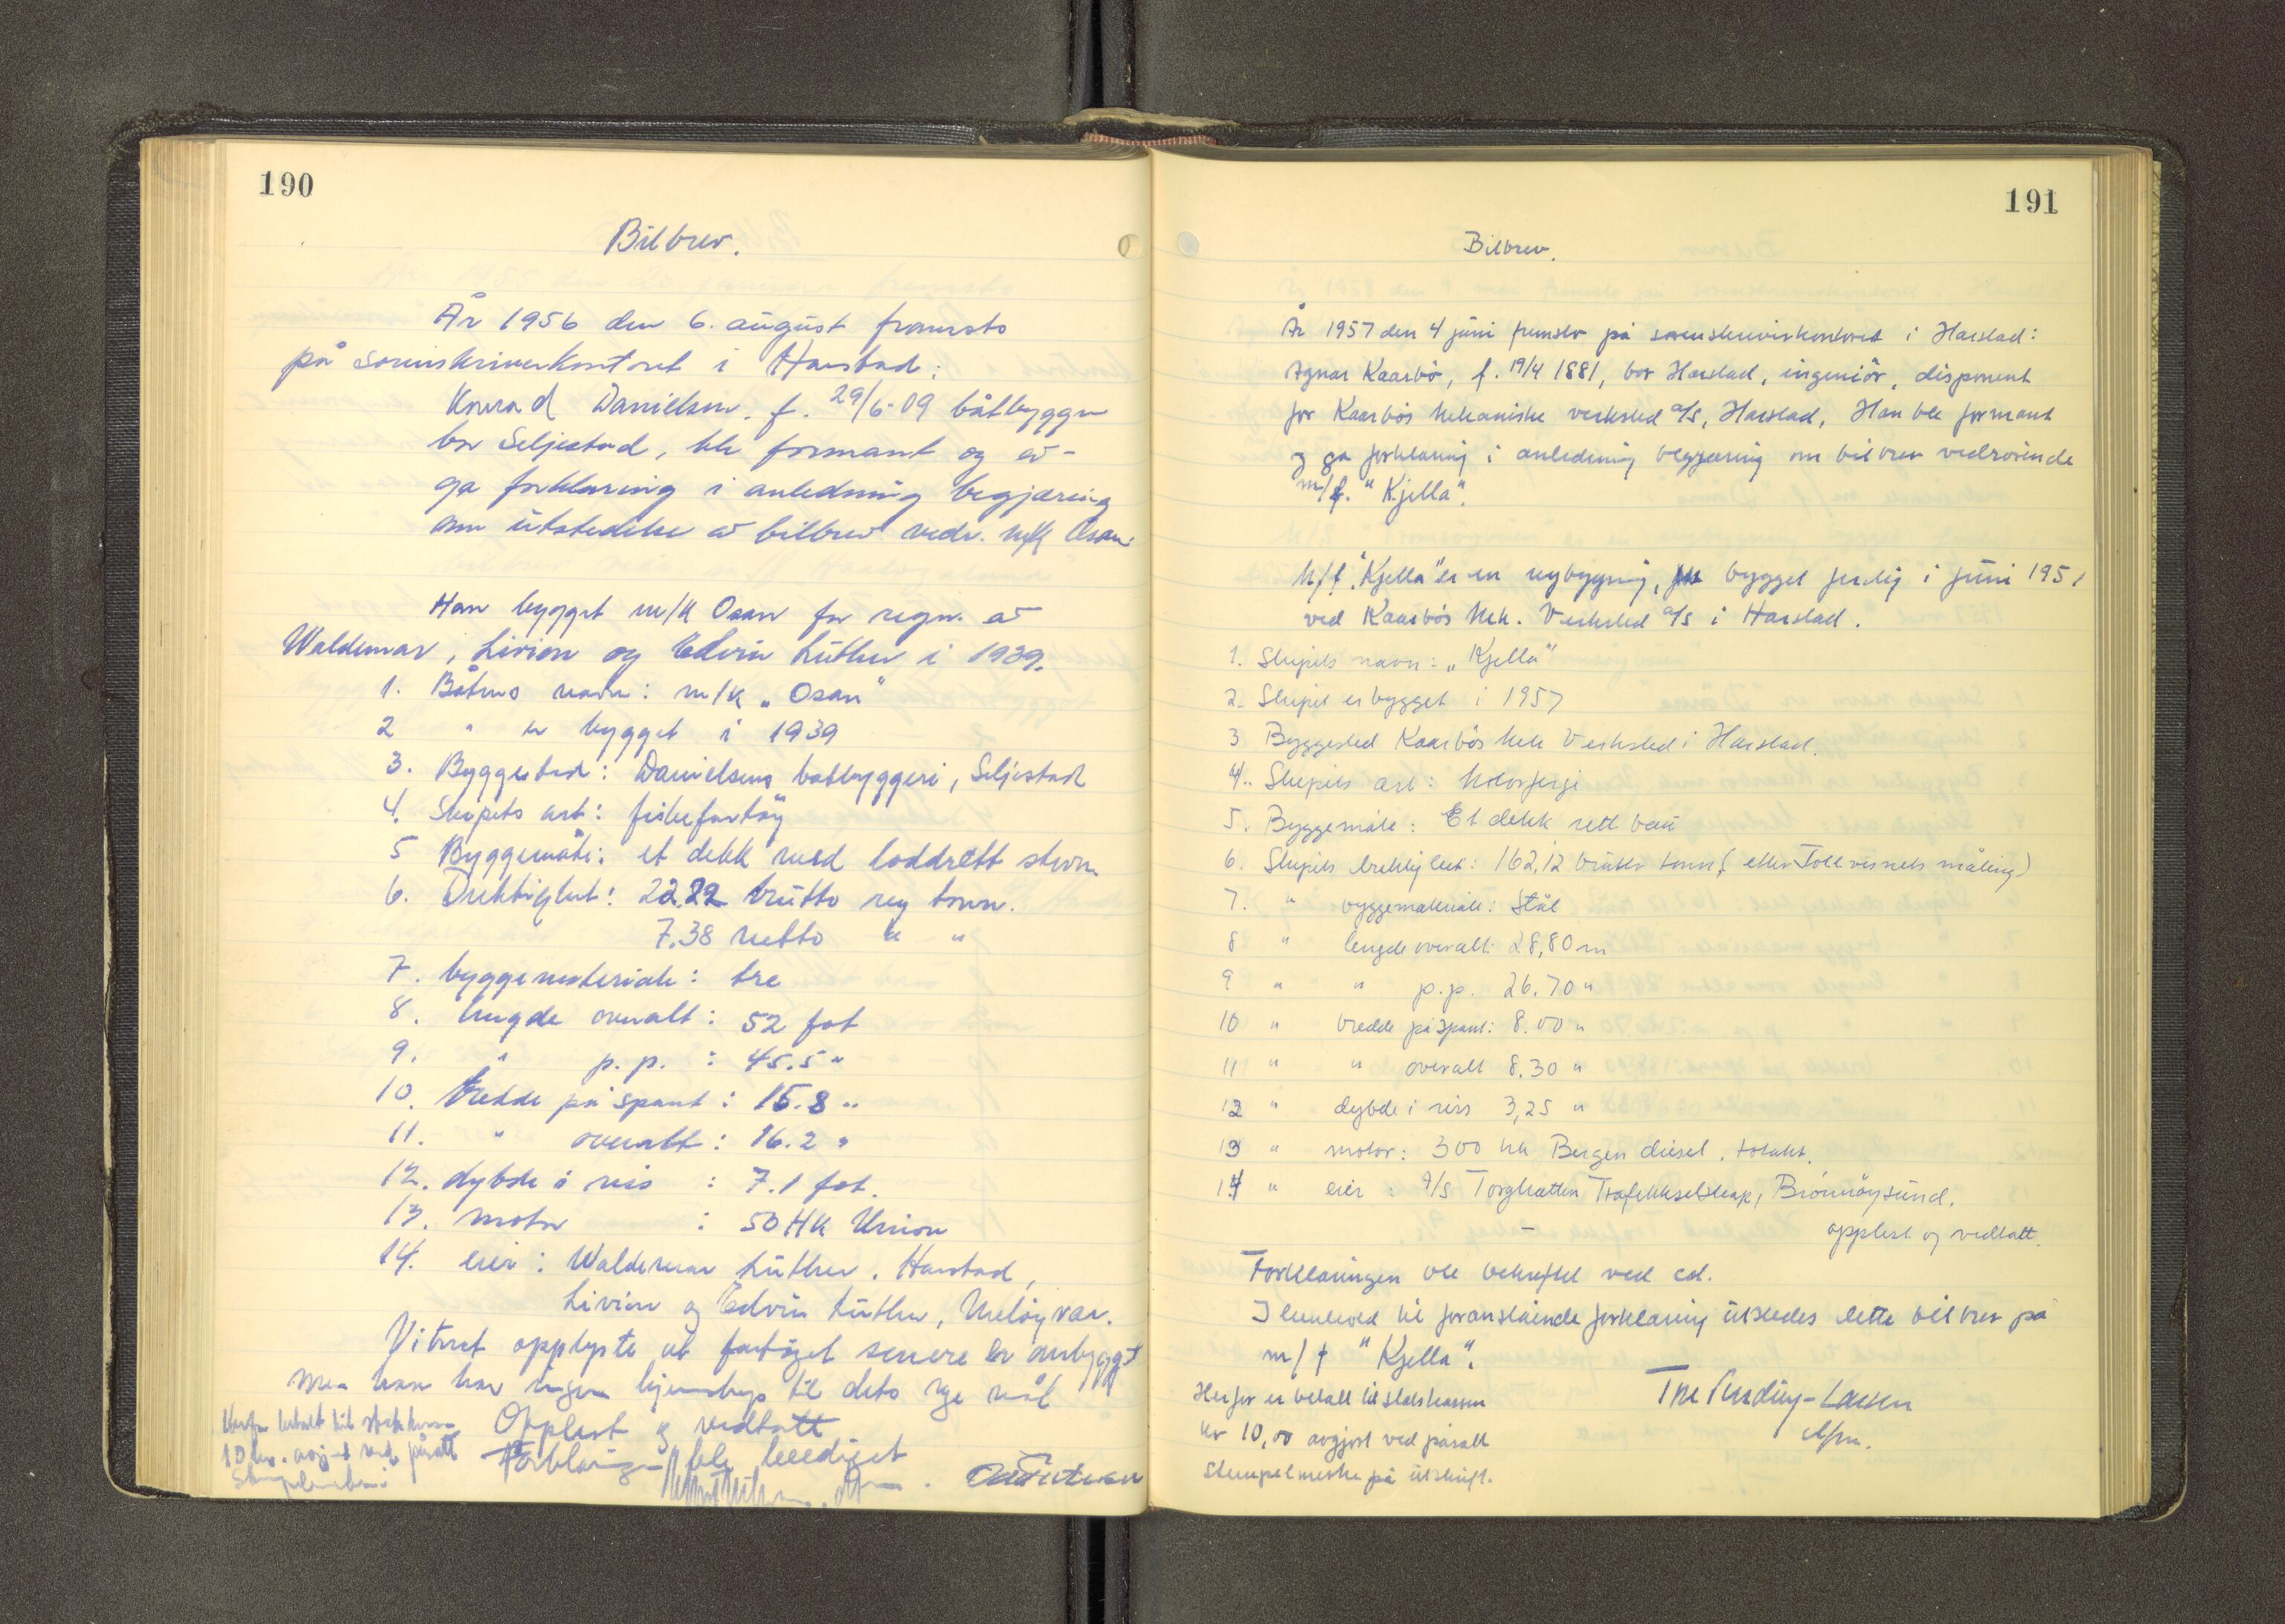 190
Bilbrev.
År 1956 den 6. august framsto
på sorenskriverkontoret i Harstad:
Konrad Danielsen. f. 29/6-09 båtbygger
bor Seljestad, ble formant og av-
ga forklaring i anledning begjæring
om utstedelse av bilbrev vedr. m/k Osan
Han bygget m/k Osan for regn. av
Waldemar, Livion og Edvin Luther i 1939.
1. Båtens navn: m/k „Osan"
2 " er bygget i 1939
3. Byggested: Danielsens båtbyggeri, Seljestad
4. Skipets art: fiskefartöy
5 Byggemåte: et dekk med loddrett stevn.
6. Drektighet: 22.22 brutto reg tonn.
7.38 netto " "
7. byggemateriale: tre
8. lengde overalt: 52 fot
9. " p.p. : 45.5 "
10. bredde på spant: 15.8 "
11. " overalt: 16.2 "
12. dybde i riss : 7.1 fot.
13. motor : 50 HK Union
14. eier: Waldemar Luther. Harstad,
Livion og Edvin Luther, Meløyvær.
Vitnet opplyste at fartöyet senere er ombygget
men han har ingen kjennskap til dets nye mål
Opplest og vedtatt
Forklaringen ble beediget
10 kr. avgjort ved påsatt
191
Bilbrev.
År 1957 den 4 juni fremsto på sorenskriverkontoret i Harstad:
Agnar Kaarbö, f. 19/4 1881, bor Harstad, ingeniör, disponent
for Kaarbös Mekaniske verksted a/s, Harstad, Han ble formant
og ga forklaring i anledning begjæring om bilbrev vedrörende
m/f. "Kjella".
M/f. "Kjella" er en nybygning, bygget ferdig i juni 195
ved Kaarbös Mek. Verksted a/s i Harstad.
1. Skipets navn: „Kjella"
2. Skipet er bygget i 1957
3 Byggested Kaarbös Mek Verksted i Harstad.
4.. Skipets art: Motorferje
5. Byggemåte: Et dekk rett bau
6. Skipets drektighet: 162,12 brutto tonn (etter Tollvesnets måling)
7. " byggemateriale: Stål
8 " lengde overalt: 28,80 m
9 " " p.p. 26.70 "
10 " bredde på spant: 8.00 "
11 " " overalt 8.30 "
12 " dybde i riss 3,25 "
13 " motor: 300 hk Bergen diesel, totakt.
14 " eier : A/S Torghatten Trafikkselskap, Brönnöysund.
– opplest og vedtatt.
Forklaringen ble bekreftet ved ed.
I henhold til foranstående forklaring utstedes dette bilbrev på
m/f "Kjella".
Herfor er betalt til Statskassen
kr 10,00 avgjort ved påsatt
Stempelmerke på utskrift.